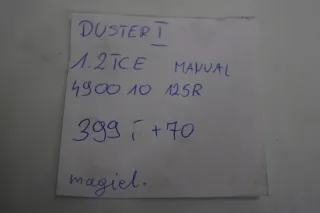 DUSTER I
1.2 TCE MANUAL
4900 10 125R
399 i +70
magiel.